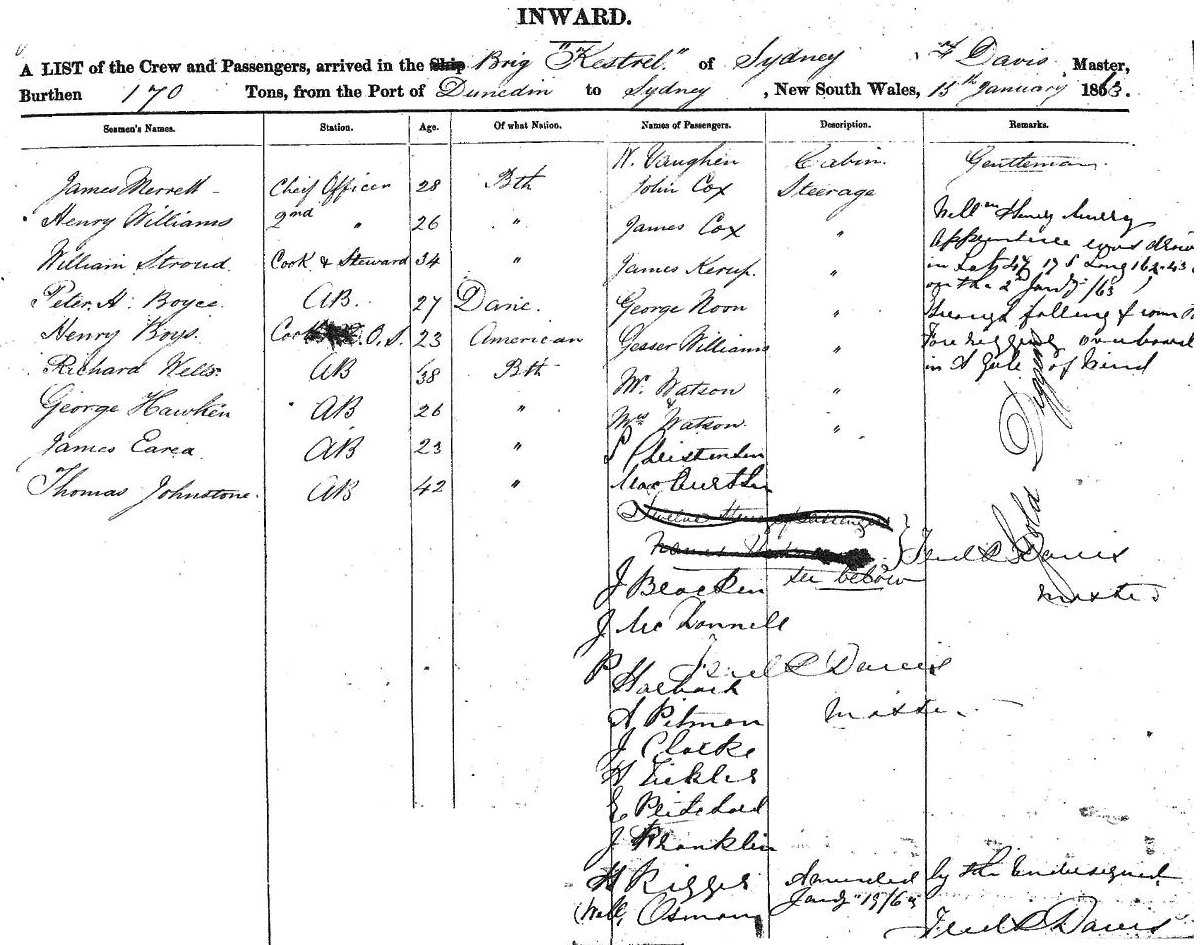 INWARD.
A LIST of the Crew and Passengers, arrived in the Ship Brig "Kestrel" of Sydney Davis Master,
Burthen 170 Tons, from the Port of Dunedin to Sydney, New South Wales, 15th January 1863.
Seamen's Names. Station. Age. Of what Nation. Names of Passengers. Description. Remarks.
W. Vaughen Cabin. Gentleman.
James Merrett Chief Officer 28 Bth John Cox Steerage
Henry Williams 2nd " 26 " James Cox "
William Stroud Cook & Steward 34 " James Kerup. "
Peter. A. Boyce. AB. 27 Dane. George Noon "
Henry Boys. Cook O.S. 23 American Gesser Williams "
Richard Wells AB 38 Bth Mr. Watson "
George Hawken AB 26 " & Mrs Watson "
James Earea. AB 23 " P Christensen
Thomas Johnstone. AB 42 " MacCurtin
Willm Henry
Apprentice was
in Lat 47 17 S Long 162.43
on the 2nd Jany /63
through falling from
Fore rigging overboard
in A Gale of Wind
Gold Diggers
Twelve Steerage passengers
names
see below
Fred L Davis
Master
J Bracken
J McDonnell
P Holbach
Fred L Davis
Master
A Pitman
J Clarke
H Tickler
E Pritchard
J Franklin
H Rigger
Will Osman
Amended by the Undersigned
Jany 19/63
Fred L Davis